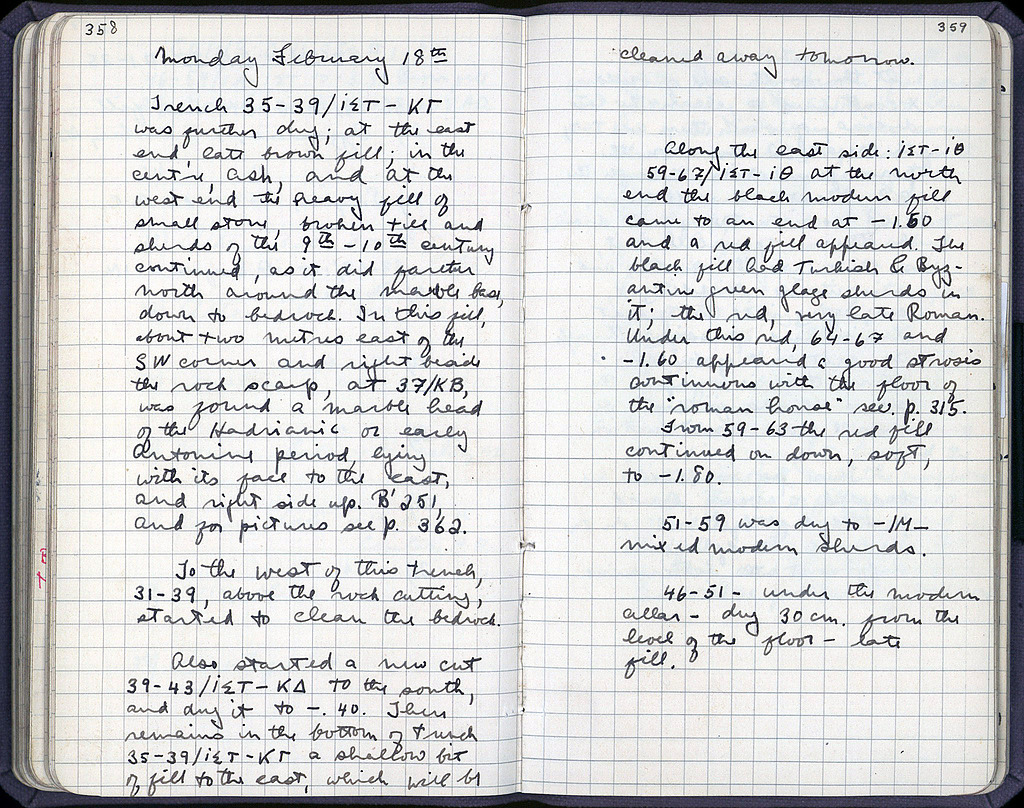 358
Monday February 18th
Trench 35-39/ΙΣΤ-ΚΓ
was further dug; at the east
end, late brown fill; in the
centre, ash, and at the
west end the heavy fill of
small stone, broken tile and
sherds of the 9th-10th century
continued, as it did farther
north around the marble base,
down to bedrock. In this fill,
about two metres east of the
SW corner and right beside
the rock scarp, at 37/ΚΒ,
was found a marble head
of the Hadrianic or early
Antonine period, lying
with its face to the east,
and right side up. B'251,
and for pictures see p. 362.
To the west of this trench,
31-39, above the rock cutting,
started to clean the bedrock.
Also started a new cut
39-43/ΙΣΤ-ΚΔ to the south,
and dug it to -.40. There
remains in the bottom of trench
35-39/ΙΣΤ-ΚΓ a shallow bit
of fill to the east, which will be
359
cleaned away tomorrow.
Along the east side: ΙΣΤ-ΙΘ
59-67/ΙΣΤ-ΙΘ at the north
end the black modern fill
came to an end at -1.50
and a red fill appeared. The
black fill had Turkish & Byz-
antine green glaze sherds in
it; the red, very late Roman.
Under this red, 64-67 and
-1.60 appeared a good strosis
continuous with the floor of
the "roman house" see p. 315.
From 59-63 the red fill
continued on down, soft,
to -1.80.
51-59 was dug to -1M-
mixed modern sherds.
46-51- under the modern
cellar - dug 30 cm. from the
level of the floor - late
fill.